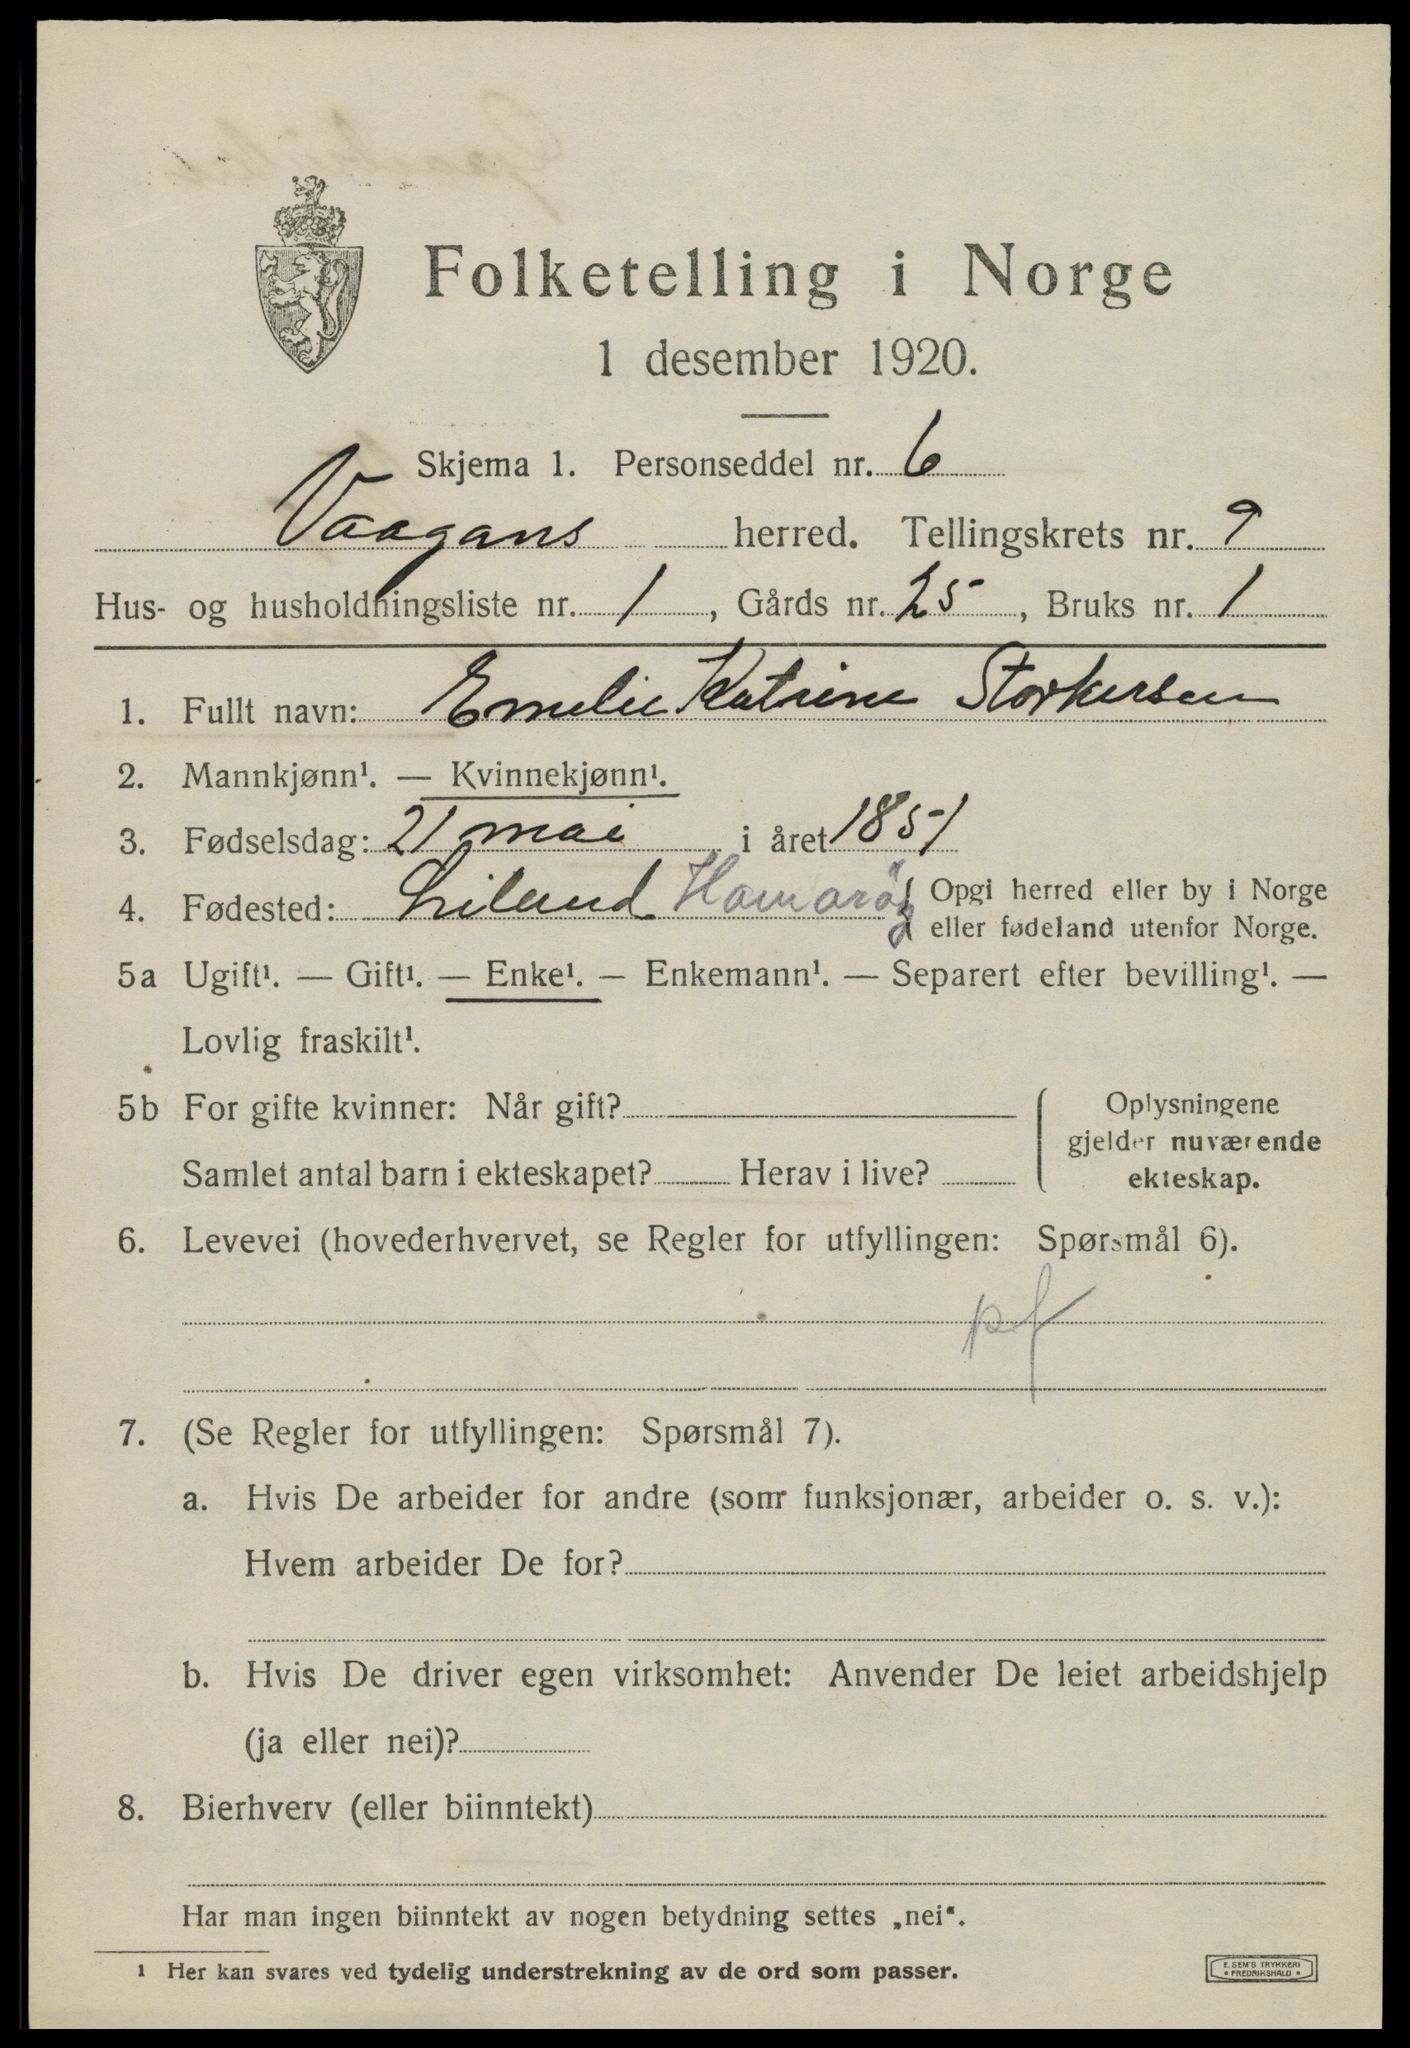 Folketelling i Norge
1 desember 1920.
Skjema 1. Personseddel nr. 6
Vaagans herred. Tellingskrets nr. 9
Hus- og husholdningsliste nr. 1, Gårds nr. 25, Bruks nr. 1
1. Fullt navn: Emelie Katrine Storkersen
2. Mannkjønn¹. — Kvinnekjønn¹.
3. Fødselsdag: 21 mai i året 1851
4. Fødested: Liland Hamarøy { Opgi herred eller by i Norge
eller fødeland utenfor Norge.
5a Ugift¹. — Gift¹. — Enke¹. — Enkemann¹. — Separert efter bevilling¹. —
Lovlig fraskilt¹.
5b For gifte kvinner: Når gift?
Samlet antal barn i ekteskapet? Herav i live?
Oplysningene
gjelder nuværende
ekteskap.
6. Levevei (hovederhvervet, se Regler for utfyllingen: Spørsmål 6).
pf
7. (Se Regler for utfyllingen: Spørsmål 7).
a. Hvis De arbeider for andre (som funksjonær, arbeider o. s. v.):
Hvem arbeider De for?
b. Hvis De driver egen virksomhet: Anvender De leiet arbeidshjelp
(ja eller nei)?
8. Bierhverv (eller biinntekt)
Har man ingen biinntekt av nogen betydning settes „nei".
¹ Her kan svares ved tydelig understrekning av de ord som passer.
E. SEM'S TRYKKERI
• FREDRIKSHALD •